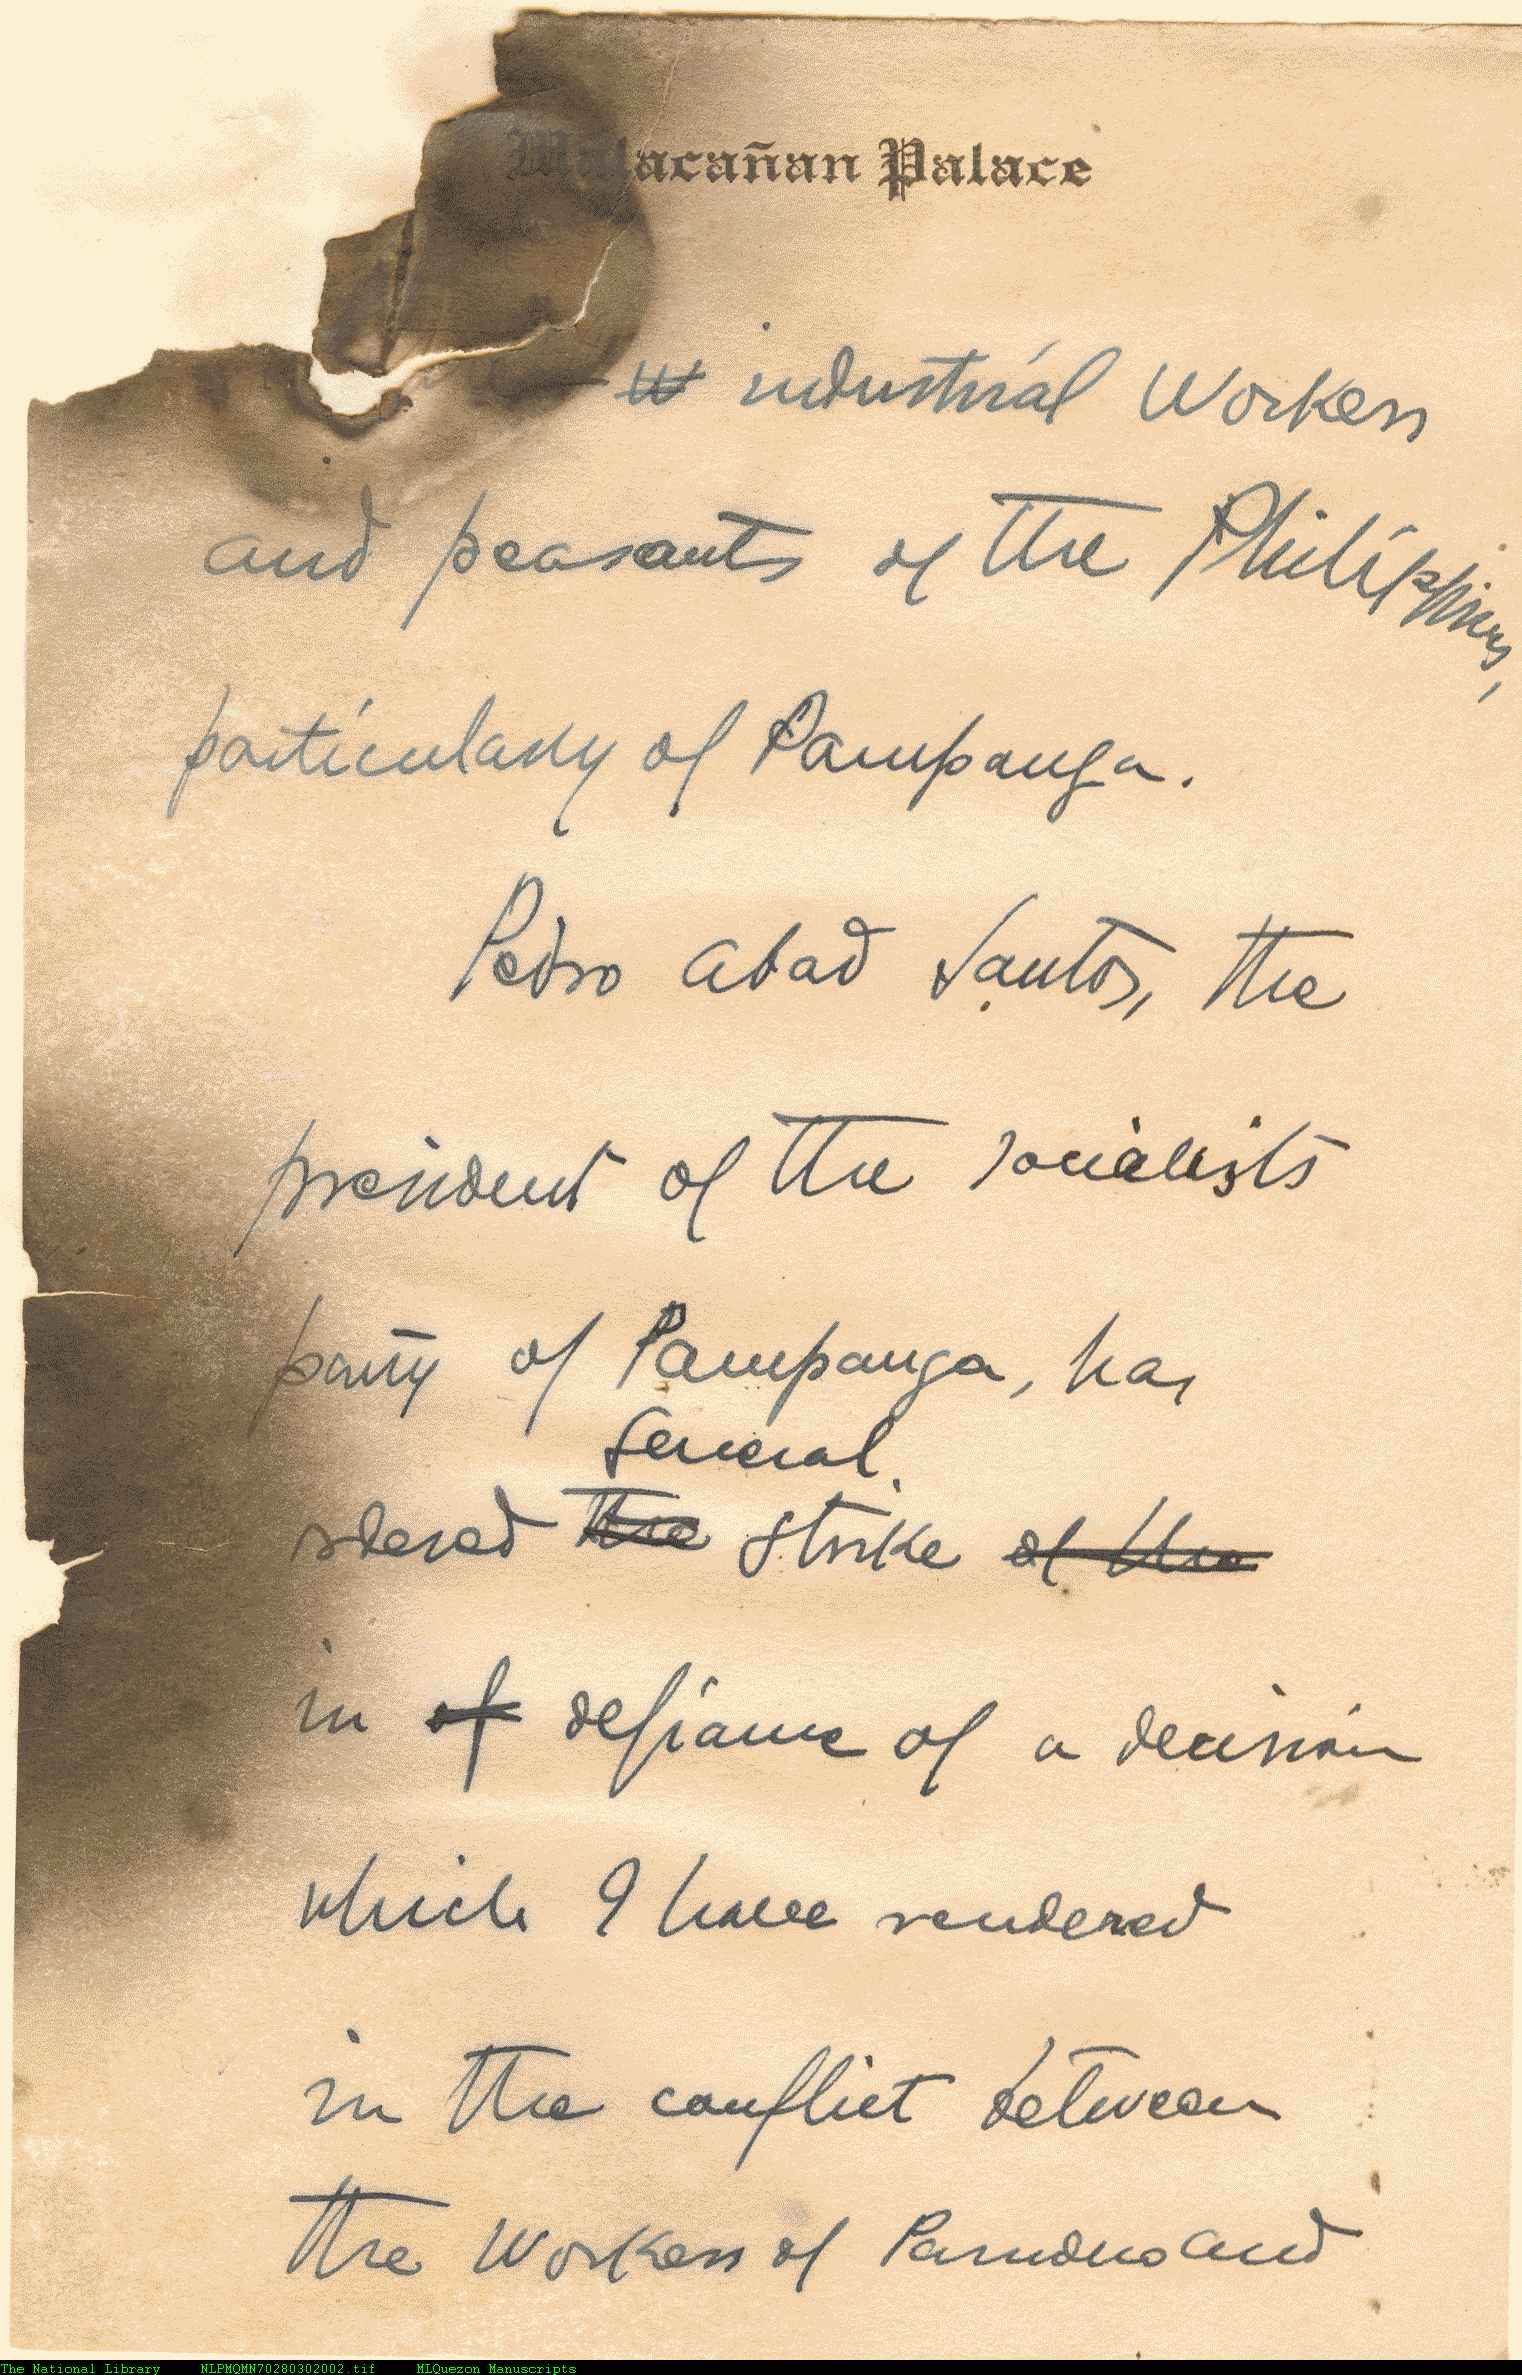 Malacañan Palace
industrial Workers
and peasants of the Philippines,
particularly of Pampanga.
Pedro Abad Santos, the
president of the socialists
party of Pampanga, has
General
ordered the strike of the
in of defiance of a decision
which I have rendered
in the conflict between
the Workers of Pasudeco and
The National Library NLPMQMN70280302002.tif MLQuezon Manuscripts